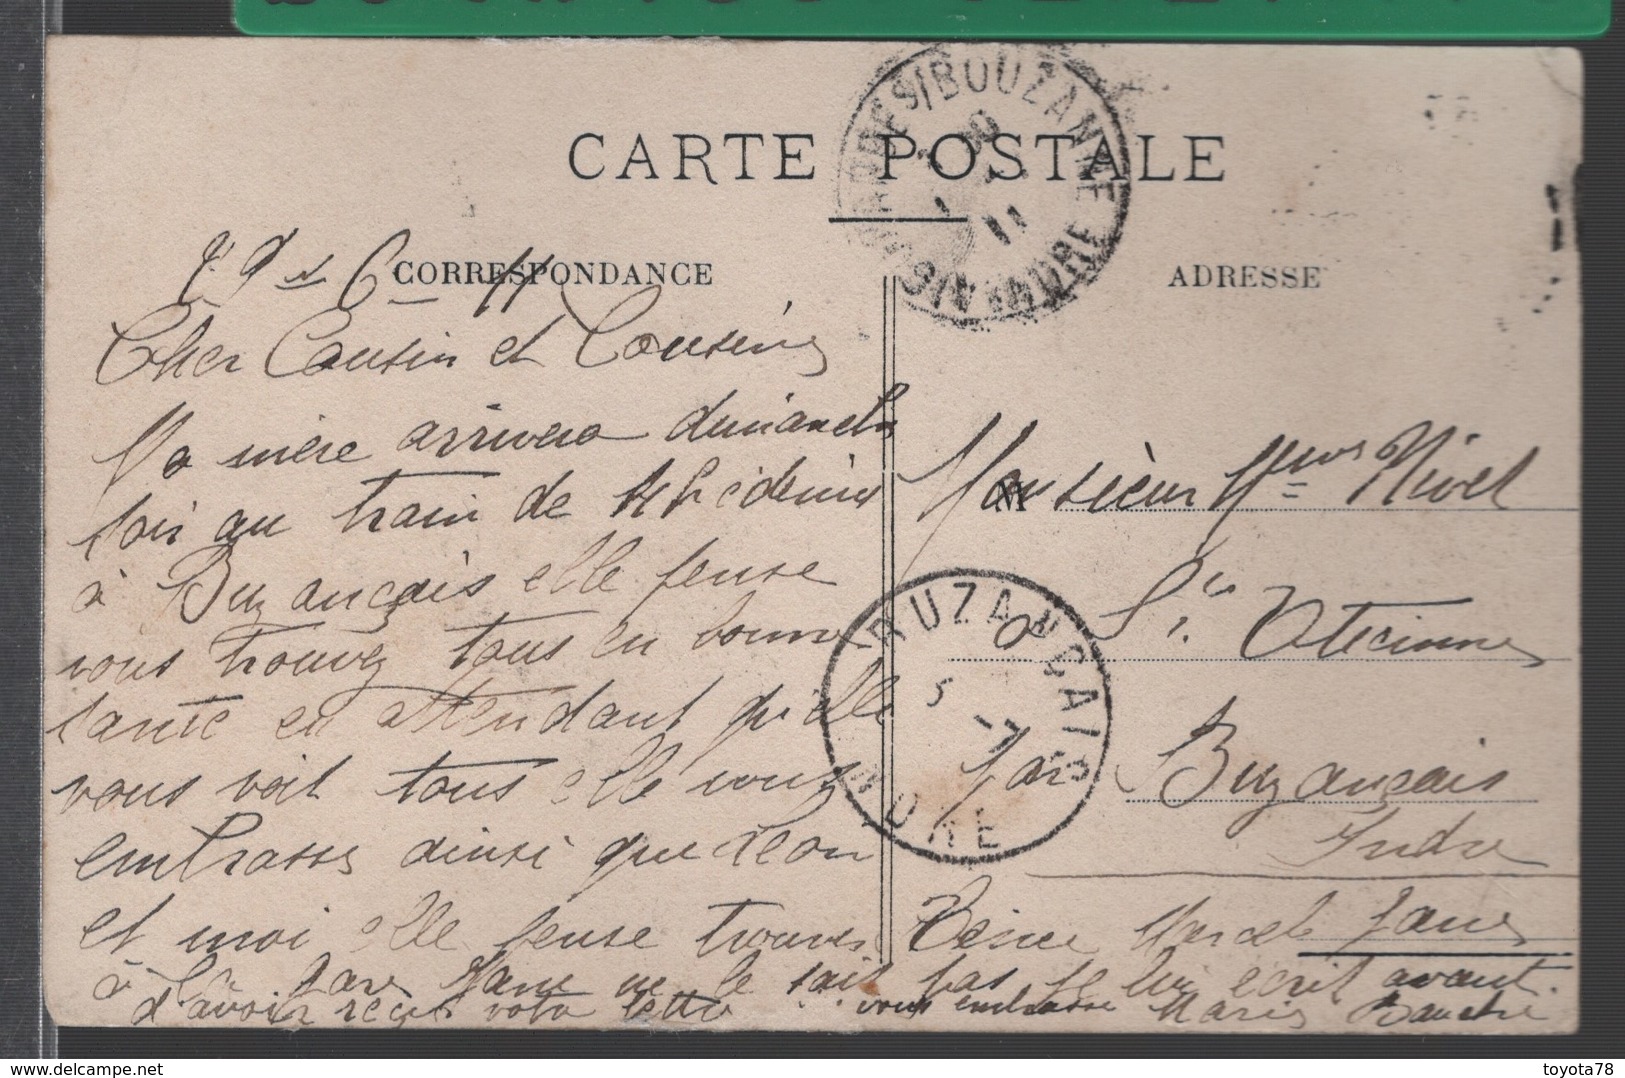 CARTE POSTALE
CORRESPONDANCE
ADRESSE
S/BOUZANNE
INDRE
11
Cher Cousin et Cousine
Ma mère arrivera dimanche
soir au train de
à Buzançais elle pense
vous trouvez tous en bonne
santé en attendant qu'elle
vous voit tous elle vous
embrasse ainsi que Léon
et moi elle pense trouver
à la gare ne le sait pas je lui écrit avant
d'avoir reçu votre lettre vous embrasse Marie
Monsieur Mme Nivet
à St Etienne
par Buzançais
Indre
BUZANCAIS
INDRE
5 -7
delcampe.net
toyota78